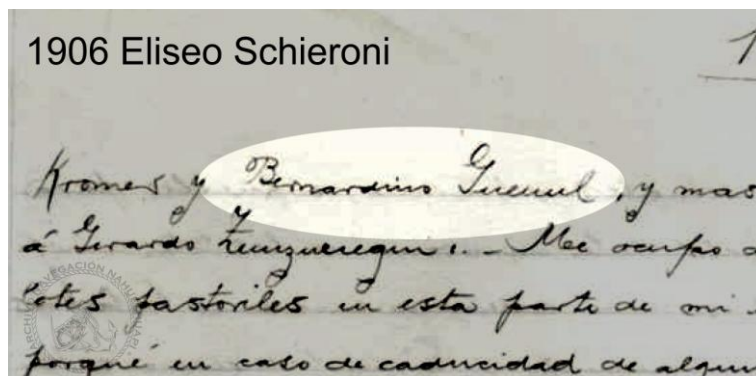 1906 Eliseo Schieroni
1
Kromer y Bernardino Guenul, y mas
á Gerardo Zunzunegui. - Me ocupo
lotes pastoriles en esta parte de mi
porqué en caso de caducidad de
ARCHIVO NAVEGACION NAHUEL HUAPI